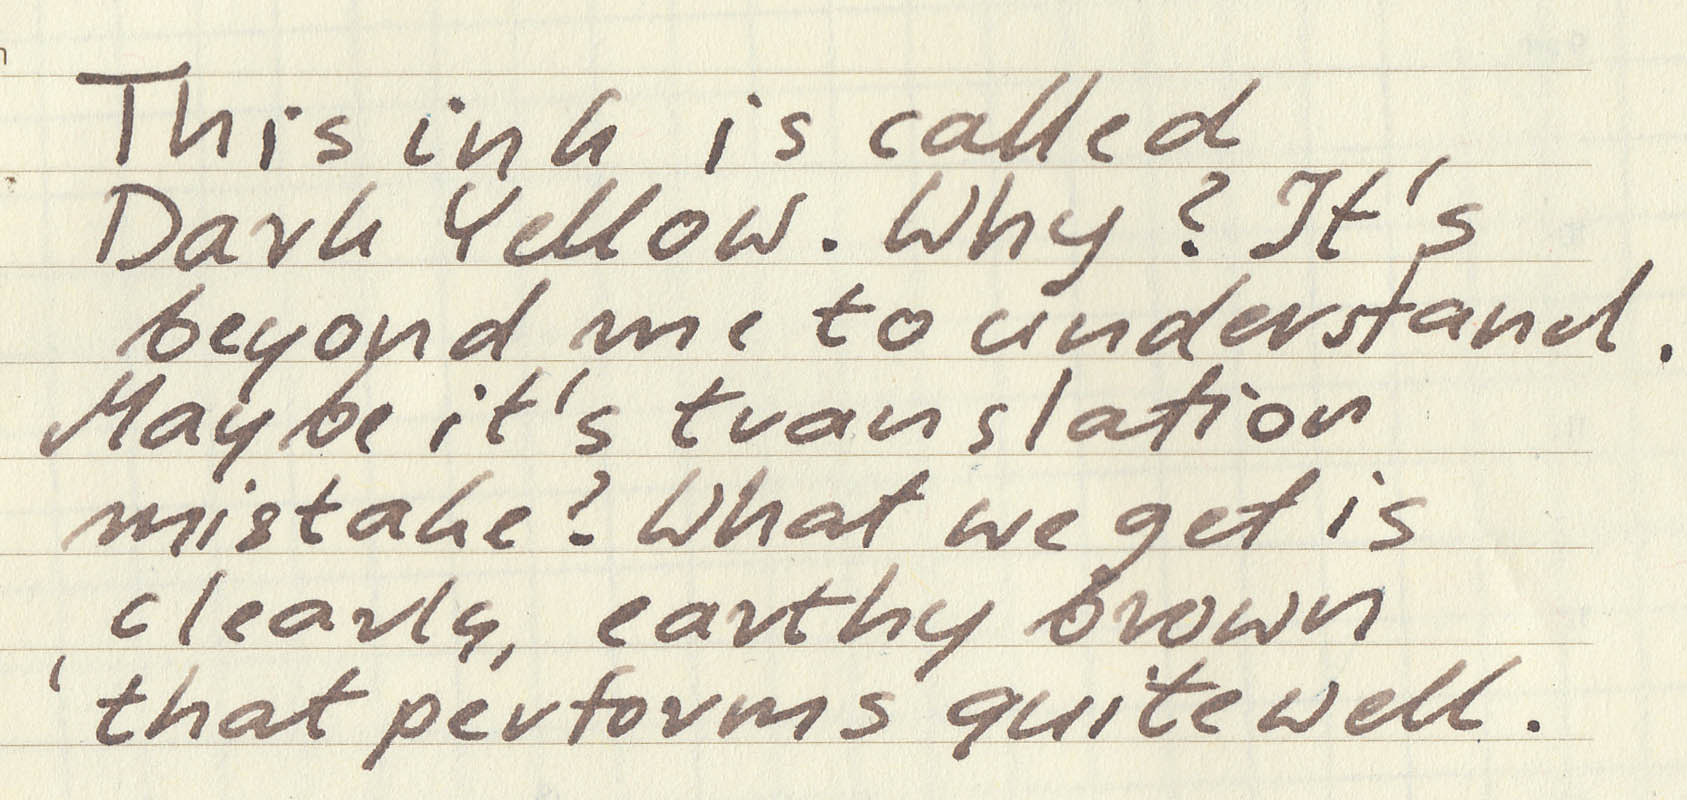 This ink is called
Dark Yellow. Why? It's
beyond me to understand.
Maybe it's translation
mistake? What we get is
clearly, earthy brown
that performs quite well.